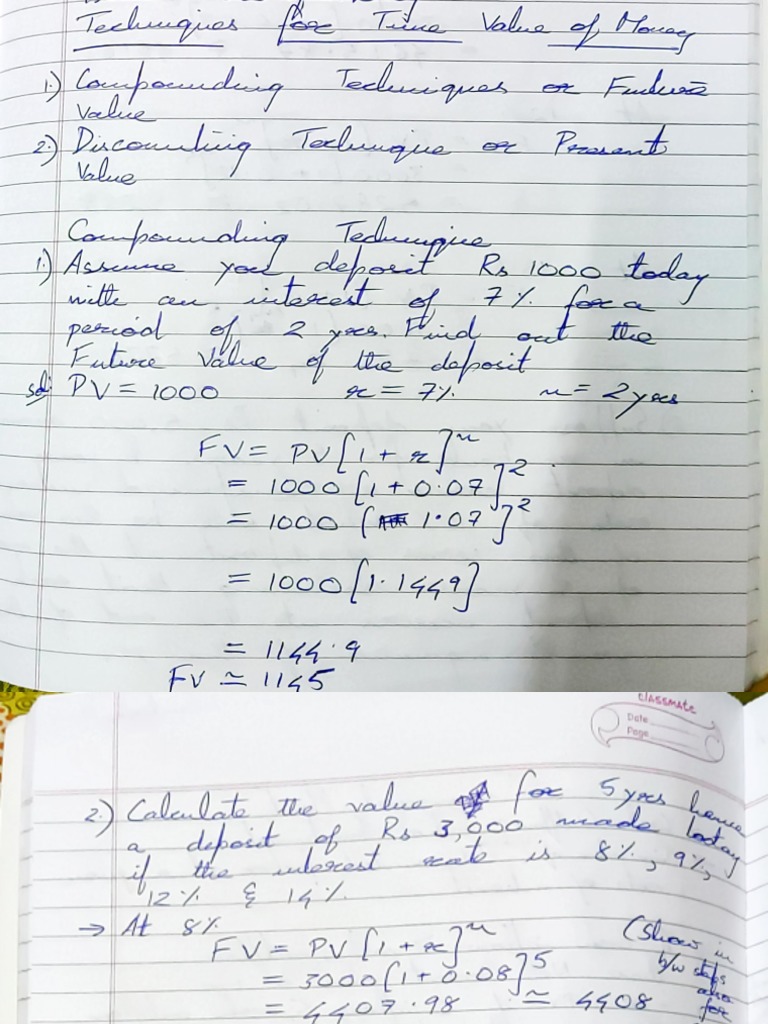 Techniques for Time Value of Money
1.) Compounding Techniques or Future
Value
2.) Discounting Technique or Present
Value
Compounding Technique
1.) Assume you deposit Rs 1000 today
with an interest of 7% for a
period of 2 yrs. Find out the
Future Value of the deposit
sol: PV = 1000 r = 7% n = 2 yrs
FV = PV [1 + r]^n
= 1000 [1 + 0.07]^2
= 1000 [1.07]^2
= 1000 [1.1449]
= 1144.9
FV ≃ 1145
classmate
Date
Page
2.) Calculate the value for 5 yrs hence
a deposit of Rs 3,000 made today
if the interest rate is 8%, 9%,
12% & 14%.
→ At 8%
FV = PV [1 + r]^n (show in
= 3000 [1 + 0.08]^5 b/w steps
also
= 4407.98 ≃ 4408 for